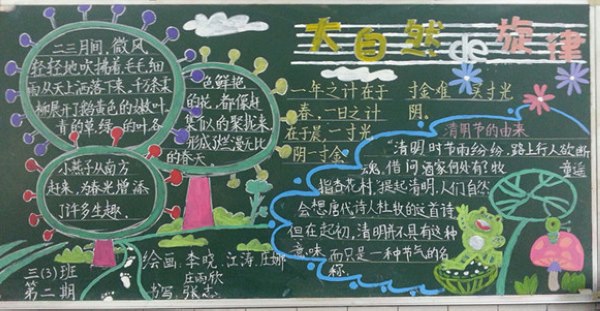 大自然de旋律
二三月间,微风
轻轻地吹拂着,毛毛细
雨从天上洒落下来,千万条柔
柳展开了鹅黄色的嫩叶,
青的草,绿的叶,各
色鲜艳
的花,都像赶
集似的聚拢来,
形成烂漫无比
的春天。
小燕子从南方
赶来,为春光增添
了许多生趣。
一年之计在于
春,一日之计
在于晨。一寸光
阴一寸金,
寸金难买寸光
阴。
清明节的由来
“清明时节雨纷纷,路上行人欲断
魂,借问酒家何处有?牧童遥
指杏花村”,提起清明,人们自然
会想唐代诗人杜牧的这首诗
但在起初,清明并不具有这种
意味,而只是一种节气的名
称。
三(3)班
第二期
绘画:李晓、江涛、庄娜
庄雨欣
书写:张志